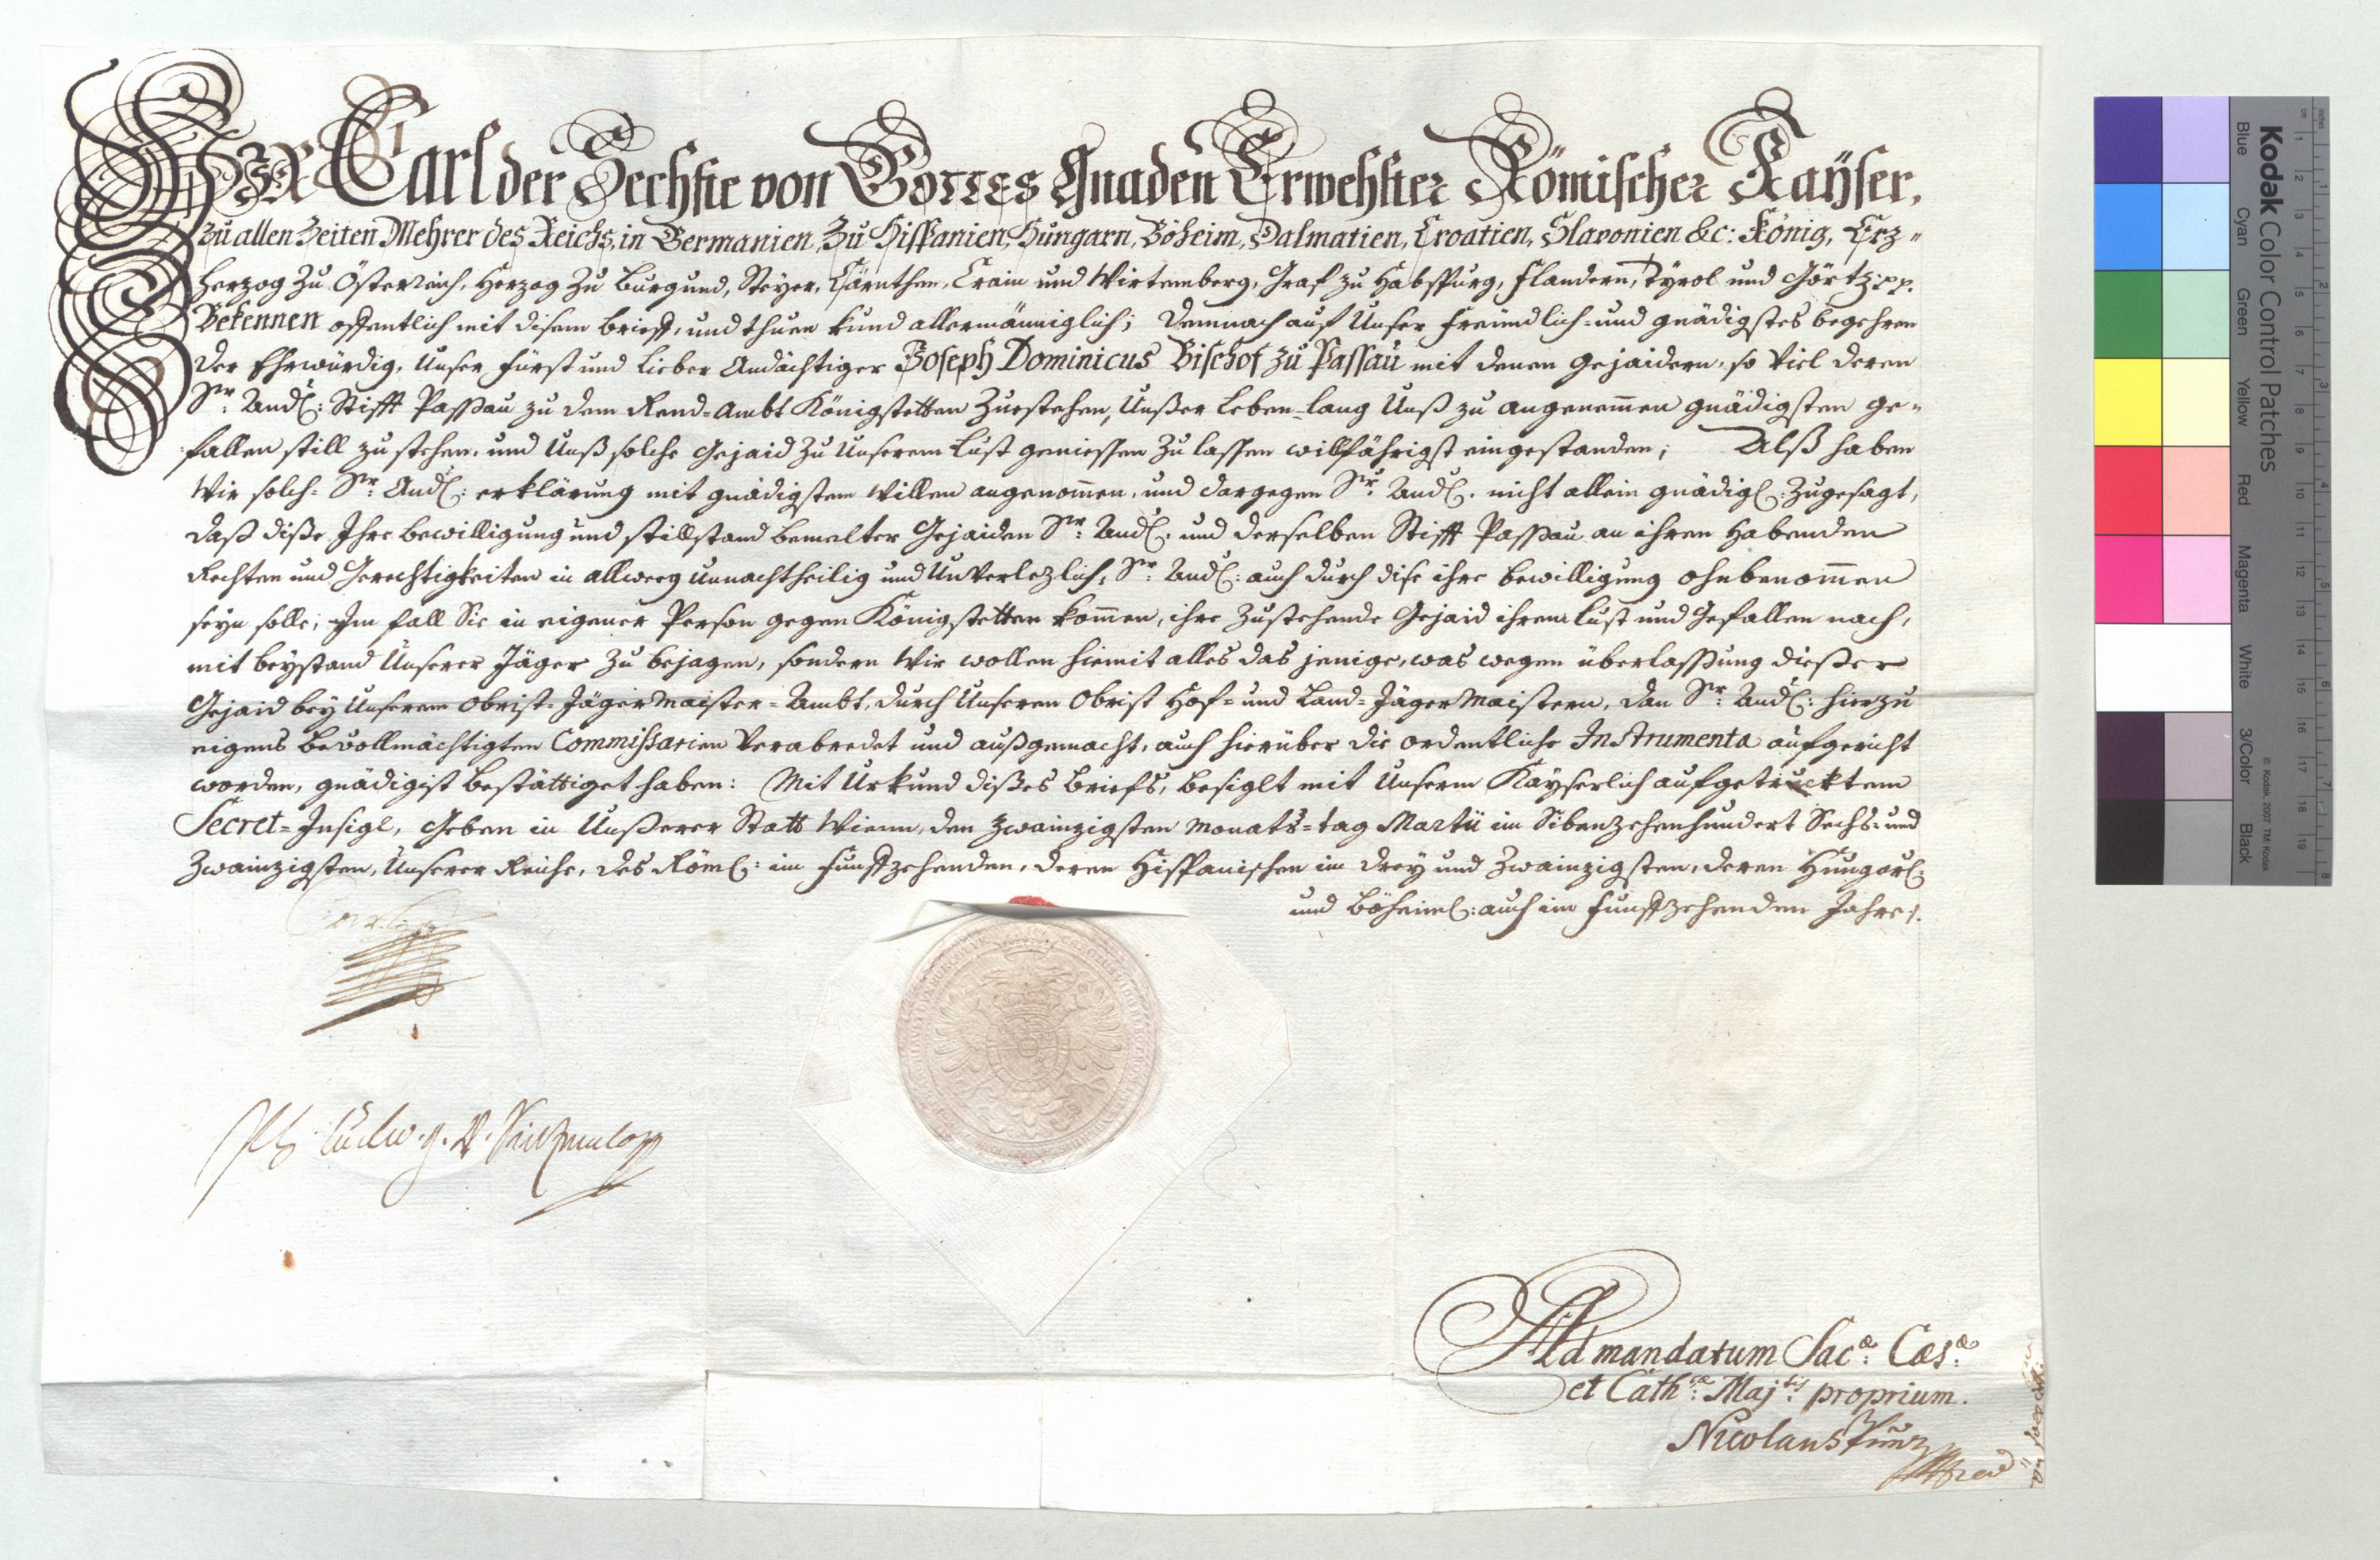 WIR Carl der Sechste von GOTTES Gnaden Erwehlter Römischer Kaÿser,
Zu allen Zeiten Mehrer des Reichs, in Germanien, Zu Hispanien, Hungarn, Böheim, Dalmatien, Croatien, Slavonien &c: König, Erz-
Herzog Zu Österreich, Herzog Zu Burgund, Steyer, Cärnthen, Crain und Wirtemberg, Graf zu Habspurg, Flandern, Tyrol und Görtz: pp.
Bekennen offentlich mit disem brieff, und thuen kund allermänniglich; Demnach auf Unser freündlich- und gnädigstes begehren
der Ehrwürdig, Unser fürst und lieber Andächtiger Joseph Dominicus Bischof zu Passau mit denen Gejaidern, so viel deren
Sr: Andl: Stifft Passau zu dem Rend-Ambt Königstetten Zuestehen, Unßer leben-lang Unß zu angenemmen gnädigsten ge-
fallen still zu stehen, und Unß solche Gejaid Zu Unserem Lust geniessen Zu lassen willfährigst eingestanden; Alß haben
Wir solch- Sr: Andl: erklärung mit gnädigstem willen angenommen, und dargegen Sr: Andl: nicht allein gnädigl: Zugesagt,
daß diße Ihre bewilligung und stillstand bemelter Gejaiden Sr: Andl: und derselben Stifft Passau an ihren habenden
Rechten und Gerechtigkeiten in allweeg unnachtheilig und Unverlezlich, Sr: Andl: auch durch dise ihre bewilligung ohnbenommen
seyn solle, Im fall Sie in eigener Person gegen Königstetten kommen, ihre Zustehende Gejaid ihrem Lust und Gefallen nach,
mit beystand Unserer Jäger Zu bejagen, sondern Wir wollen hiemit alles das jenige, was wegen überlassung dießer
Gejaid bey Unserem Obrist-Jägermaister-Ambt, durch Unseren Obrist Hof- und Land-Jägermaistern, dan Sr: Andl: hierzu
eigens bevollmächtigten Commissarien verabredet und außgemacht, auch hierüber die ordentliche Instrumenta aufgericht
worden, gnädigist bestättiget haben: Mit Urkund dißes briefs, besiglt mit Unserm Kayserlich aufgetrucktem
Secret-Insigl, Geben in Unßerer Statt Wienn, den Zwainzigsten Monats-tag Martii im Sibenzehenhundert Sechs- und
Zwainzigsten, Unserer Reiche, des Röml: im funffzehenden, deren Hispanischen im drey und Zwainzigsten, deren Hungarl:
und Böheiml: auch im funffzehenden Jahre.
Carl
Ph: Ludw. g. v. Sinzendorff
Ad mandatum Sacæ: Cæsæ:
et Cathcæ: Majtis: proprium.
Nicolaus